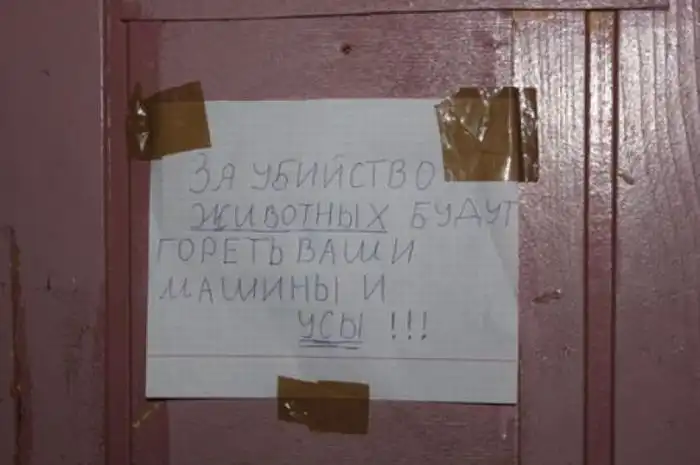 ЗА УБИЙСТВО
ЖИВОТНЫХ БУДУТ
ГОРЕТЬ ВАШИ
МАШИНЫ И
УСЫ !!!